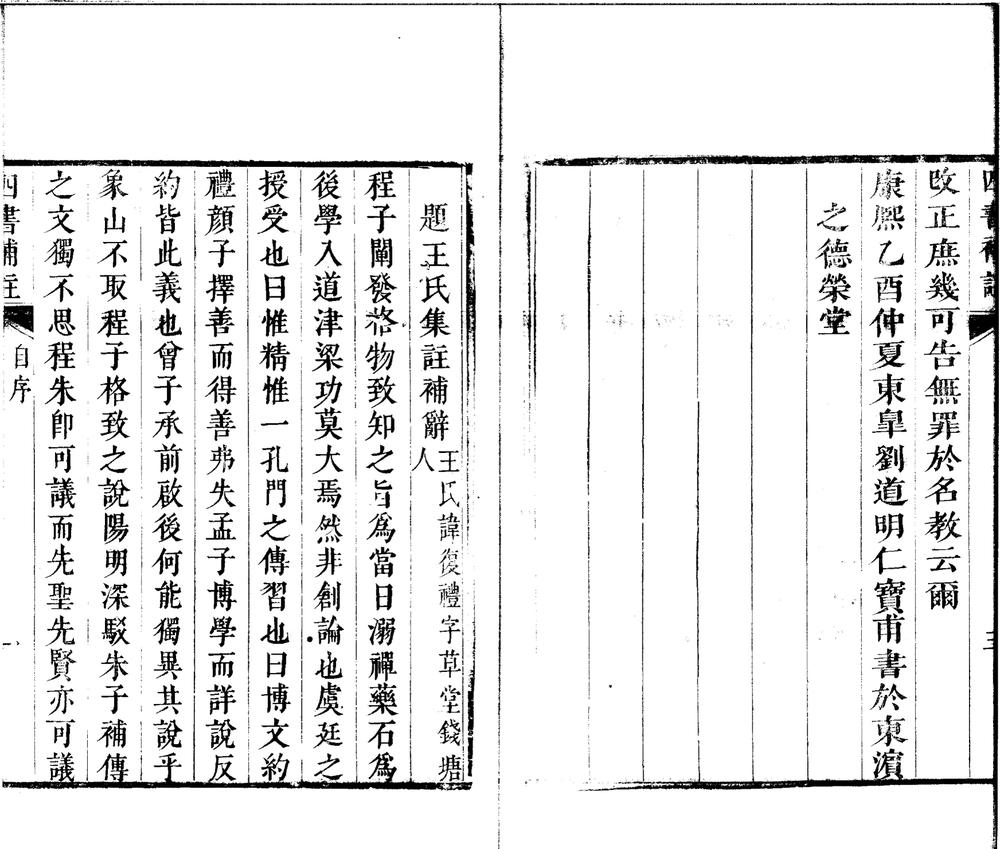 四書補註
三
改正庶幾可告無罪於名教云爾
康熙乙酉仲夏東臯劉道明仁寶甫書於東濱
之德榮堂
題王氏集註補辭王氏諱復禮字草堂錢塘
人
程子闡發格物致知之旨爲當日溺禪藥石爲
後學入道津梁功莫大焉然非創論也虞廷之
授受也曰惟精惟一孔門之傳習也曰博文約
禮顔子擇善而得善弗失孟子博學而詳說反
約皆此義也曾子承前啟後何能獨異其說乎
象山不取程子格致之說陽明深駁朱子補傳
之文獨不思程朱卽可議而先聖先賢亦可議
四書補註
自序
一